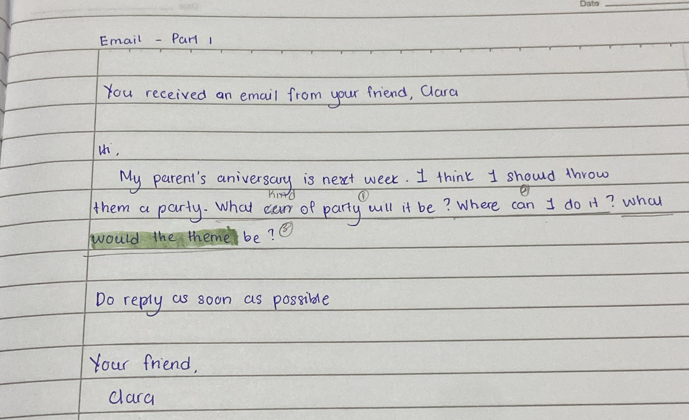 Date
Email - Part 1
You received an email from your friend, Clara
Hi,
My parent's aniversary is next week. I think I should throw
kind ① ②
them a party. What of party will it be? Where can I do it? What
would the theme be? ③
Do reply as soon as possible
Your friend,
Clara